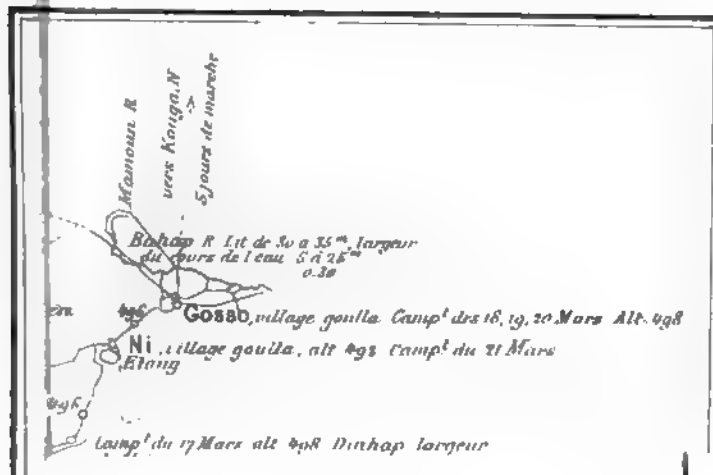 Mamoun R
vers Kouga. N
5 jours de marche
Bahap R Lit de 30 a 35ᵐ, largeur
du cours de l'eau 5 à 25ᵐ
0.30
496
Gosso, village goulla. Campᵗ des 18, 19, 20 Mars Alt. 498
Ni, village goulla, alt 493 Campᵗ du 21 Mars
Etang
496
Campᵗ du 17 Mars alt 498 largeur